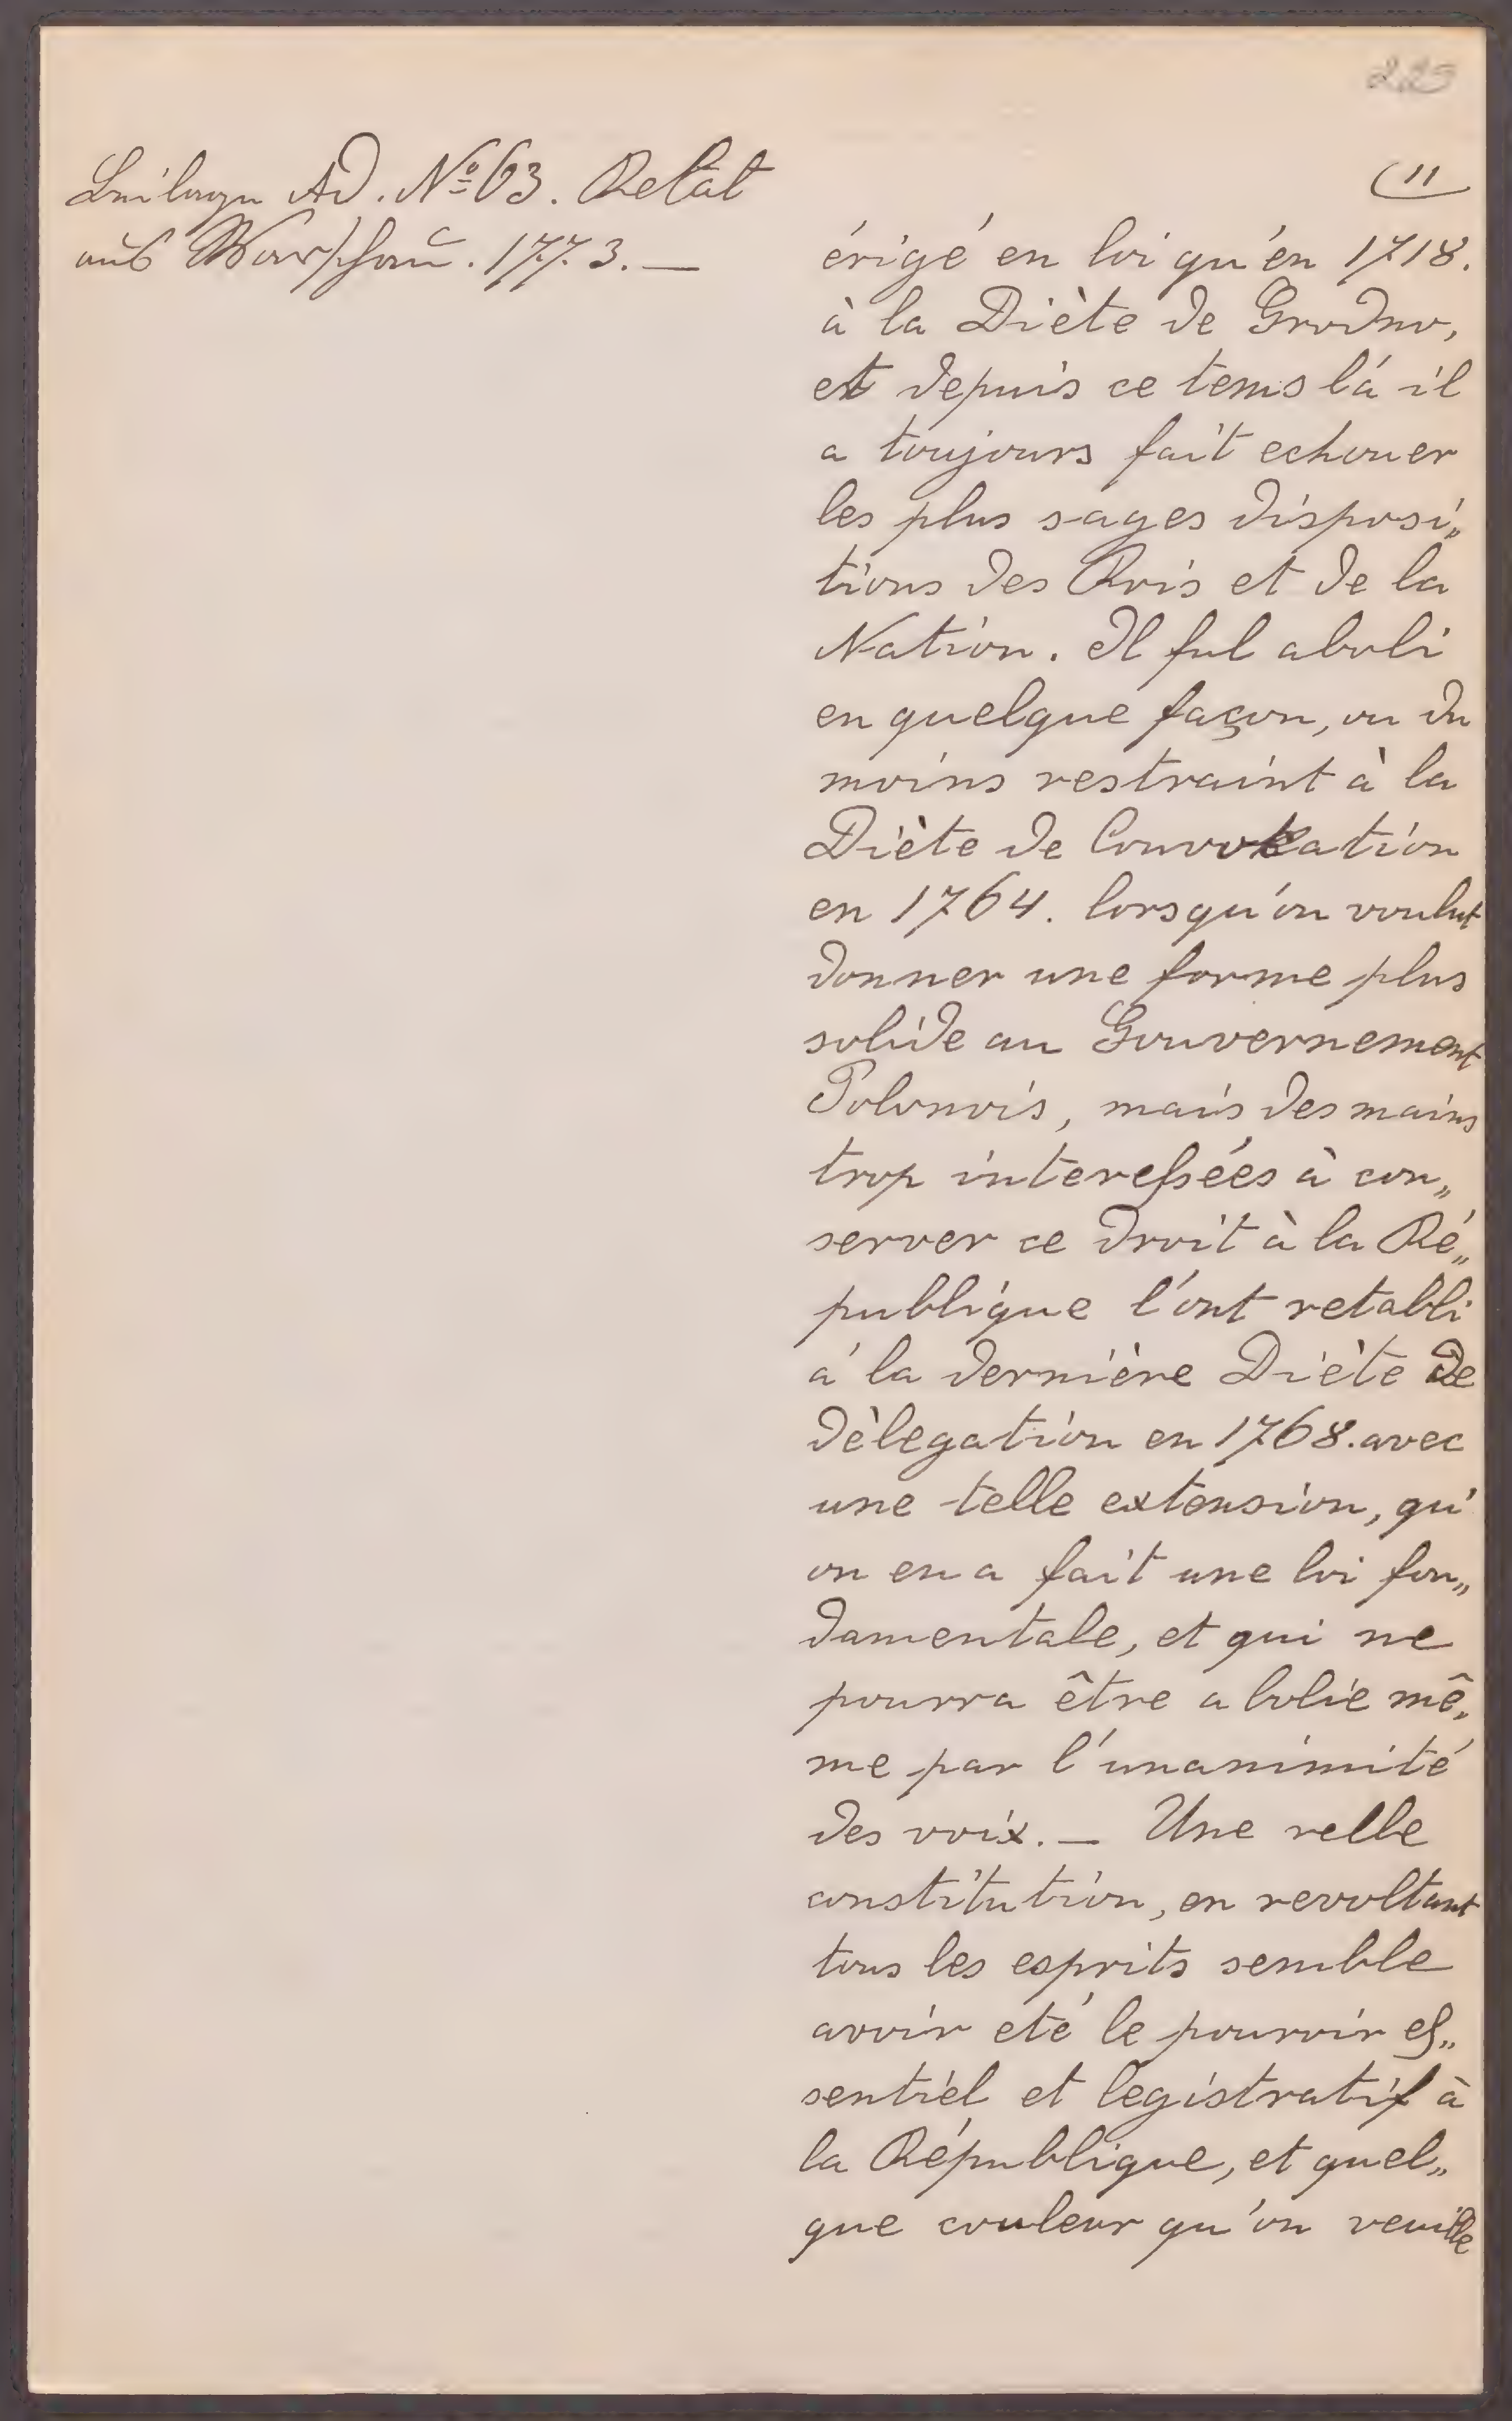 225
Beilage Ad. № 63. Relat
aus Warschau. 1773. —
(11
érigé en loi qu'en 1718.
à la Diète de Grodno,
et depuis ce tems là il
a toujours fait echouer
les plus sages disposi„
tions des Rois et de la
Nation. Il fut aboli
en quelque façon, ou du
moins restraint à la
Diète de Convokation
en 1764. lorsqu'on voulut
donner une forme plus
solide au Gouvernement
Polonois, mais des mains
trop interessées à con„
server ce droit à la Ré„
publique l'ont retabli
à la dernière Diète de
Dèlegation en 1768. avec
une telle extension, qu'
on en a fait une loi fon„
damentale, et qui ne
pourra être abolie mê„
me par l'unanimité
des voix. — Une relle
constitution, en revoltant
tous les esprits semble
avoir eté le pouvoir es„
sentiel et legistratif à
la République, et quel„
que couleur qu'on veuille